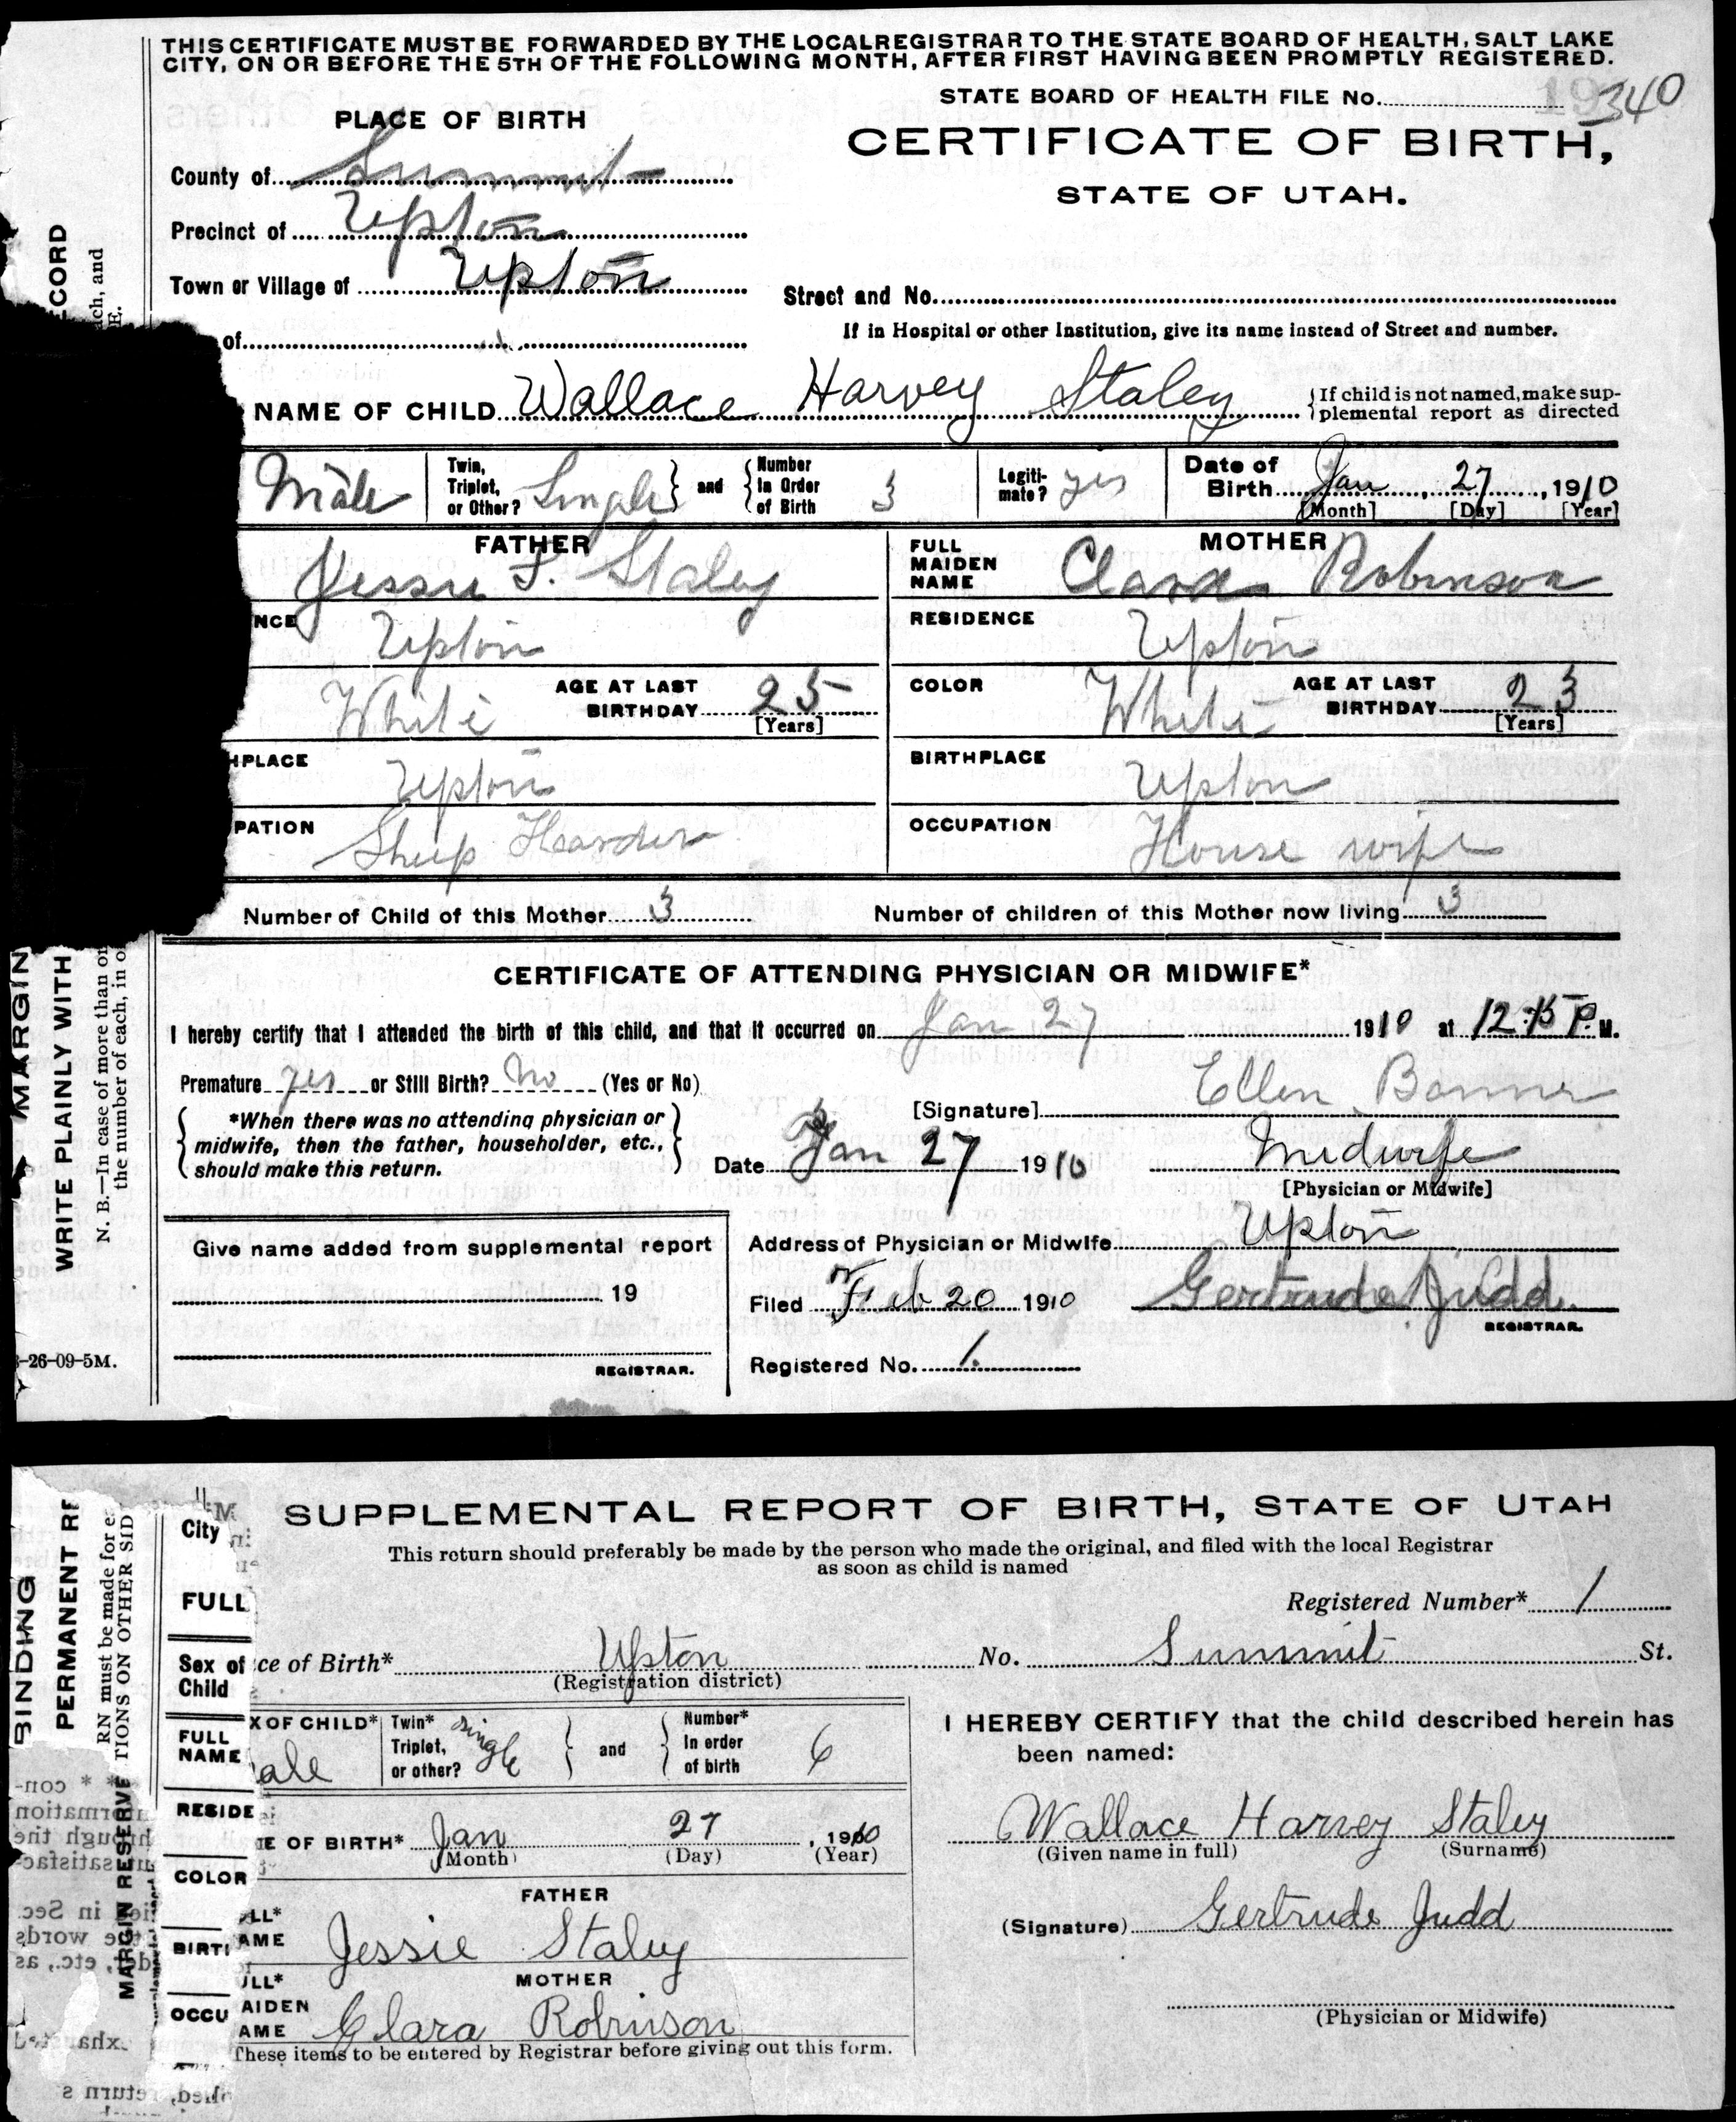 THIS CERTIFICATE MUST BE FORWARDED BY THE LOCAL REGISTRAR TO THE STATE BOARD OF HEALTH, SALT LAKE
CITY, ON OR BEFORE THE 5TH OF THE FOLLOWING MONTH, AFTER FIRST HAVING BEEN PROMPTLY REGISTERED.
STATE BOARD OF HEALTH FILE No. 340
PLACE OF BIRTH
CERTIFICATE OF BIRTH,
STATE OF UTAH.
County of Summit
Precinct of Upton
Town or Village of Upton
Street and No.
If in Hospital or other Institution, give its name instead of Street and number.
of
NAME OF CHILD Wallace Harvey Staley
{If child is not named, make sup-
plemental report as directed
Male
Twin, Triplet, or Other? Single } and { Number In Order of Birth 3
Legiti-mate? yes
Date of Birth Jan, 27, 1910
[Month] [Day] [Year]
FATHER
Jessie F. Staley
MOTHER
FULL MAIDEN NAME Clara Robinson
NCE Upton
RESIDENCE Upton
White AGE AT LAST BIRTHDAY 25 [Years]
COLOR White AGE AT LAST BIRTHDAY 23 [Years]
HPLACE Upton
BIRTHPLACE Upton
PATION Sheep Hearder
OCCUPATION House wife
Number of Child of this Mother 3
Number of children of this Mother now living 3
CERTIFICATE OF ATTENDING PHYSICIAN OR MIDWIFE*
I hereby certify that I attended the birth of this child, and that it occurred on Jan 27 1910 at 12:15 P. M.
Premature yes or Still Birth? No (Yes or No)
*When there was no attending physician or
midwife, then the father, householder, etc.,
should make this return.
[Signature] Ellen Bonner
Date Jan 27 1910 Midwife
[Physician or Midwife]
Give name added from supplemental report
19
REGISTRAR.
Address of Physician or Midwife Upton
Filed Feb 20 1910 Gertrude Judd
REGISTRAR.
Registered No. 1.
ECORD
ach, and
E.
MARGIN
WRITE PLAINLY WITH
N. B.—In case of more than on
the number of each, in o
-26-09-5M.
SUPPLEMENTAL REPORT OF BIRTH, STATE OF UTAH
This return should preferably be made by the person who made the original, and filed with the local Registrar
as soon as child is named
Registered Number* 1
ce of Birth* Upton No. Summit St.
(Registration district)
X OF CHILD* ale
Twin* Triplet, or other? single } and { Number* In order of birth 6
E OF BIRTH* Jan 27, 1910
(Month) (Day) (Year)
FATHER
LL* AME Jessie Staley
MOTHER
ULL* AIDEN AME Clara Robinson
These items to be entered by Registrar before giving out this form.
I HEREBY CERTIFY that the child described herein has
been named:
Wallace Harvey Staley
(Given name in full) (Surname)
(Signature) Gertrude Judd
(Physician or Midwife)
City
FULL
Sex of
Child
FULL
NAME
RESIDE
COLOR
BIRTI
OCCU
BINDING
PERMANENT RE
RN must be made for e
TIONS ON OTHER SID
MARGIN RESERVE